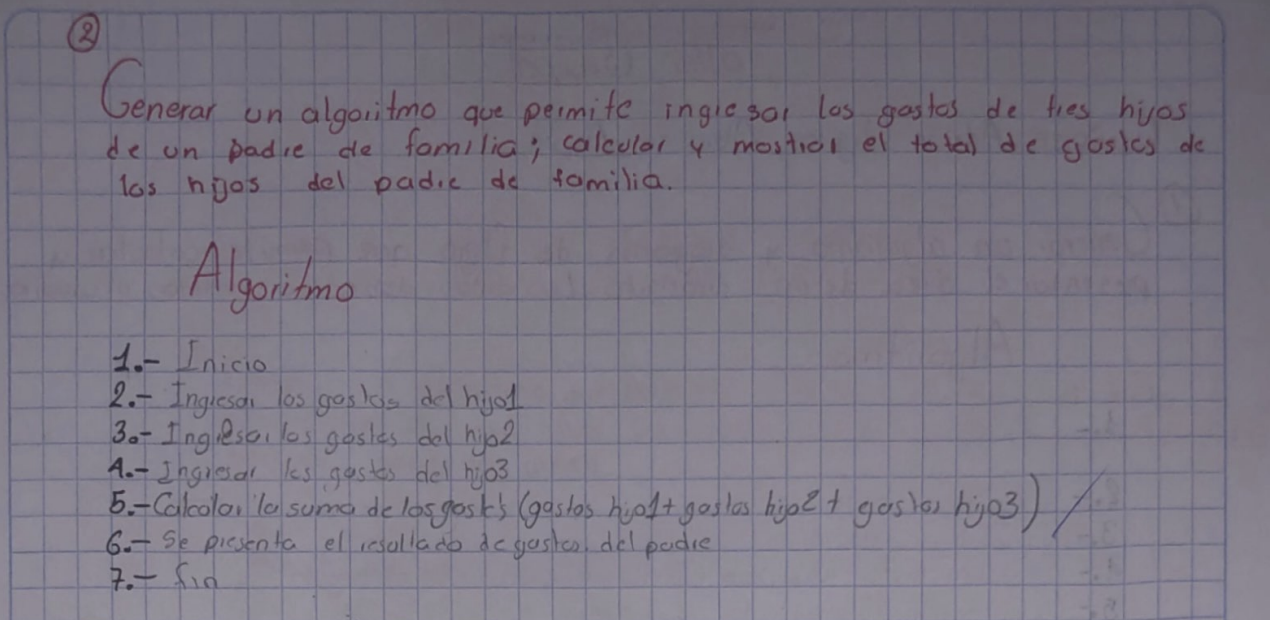 ②
Generar un algoritmo que permite ingresar los gastos de tres hijos
de un padre de familia; calcular y mostrar el total de gastos de
los hijos del padre de familia.
Algoritmo
1.- Inicio
2.- Ingresar los gastos del hijo1
3.- Ingresar los gastos del hijo2
4.- Ingresar los gastos del hijo3
5.- Calcular la suma de los gastos (gastos hijo1 + gastos hijo2 + gastos hijo3)
6.- Se presenta el resultado de gastos del padre
7.- fin